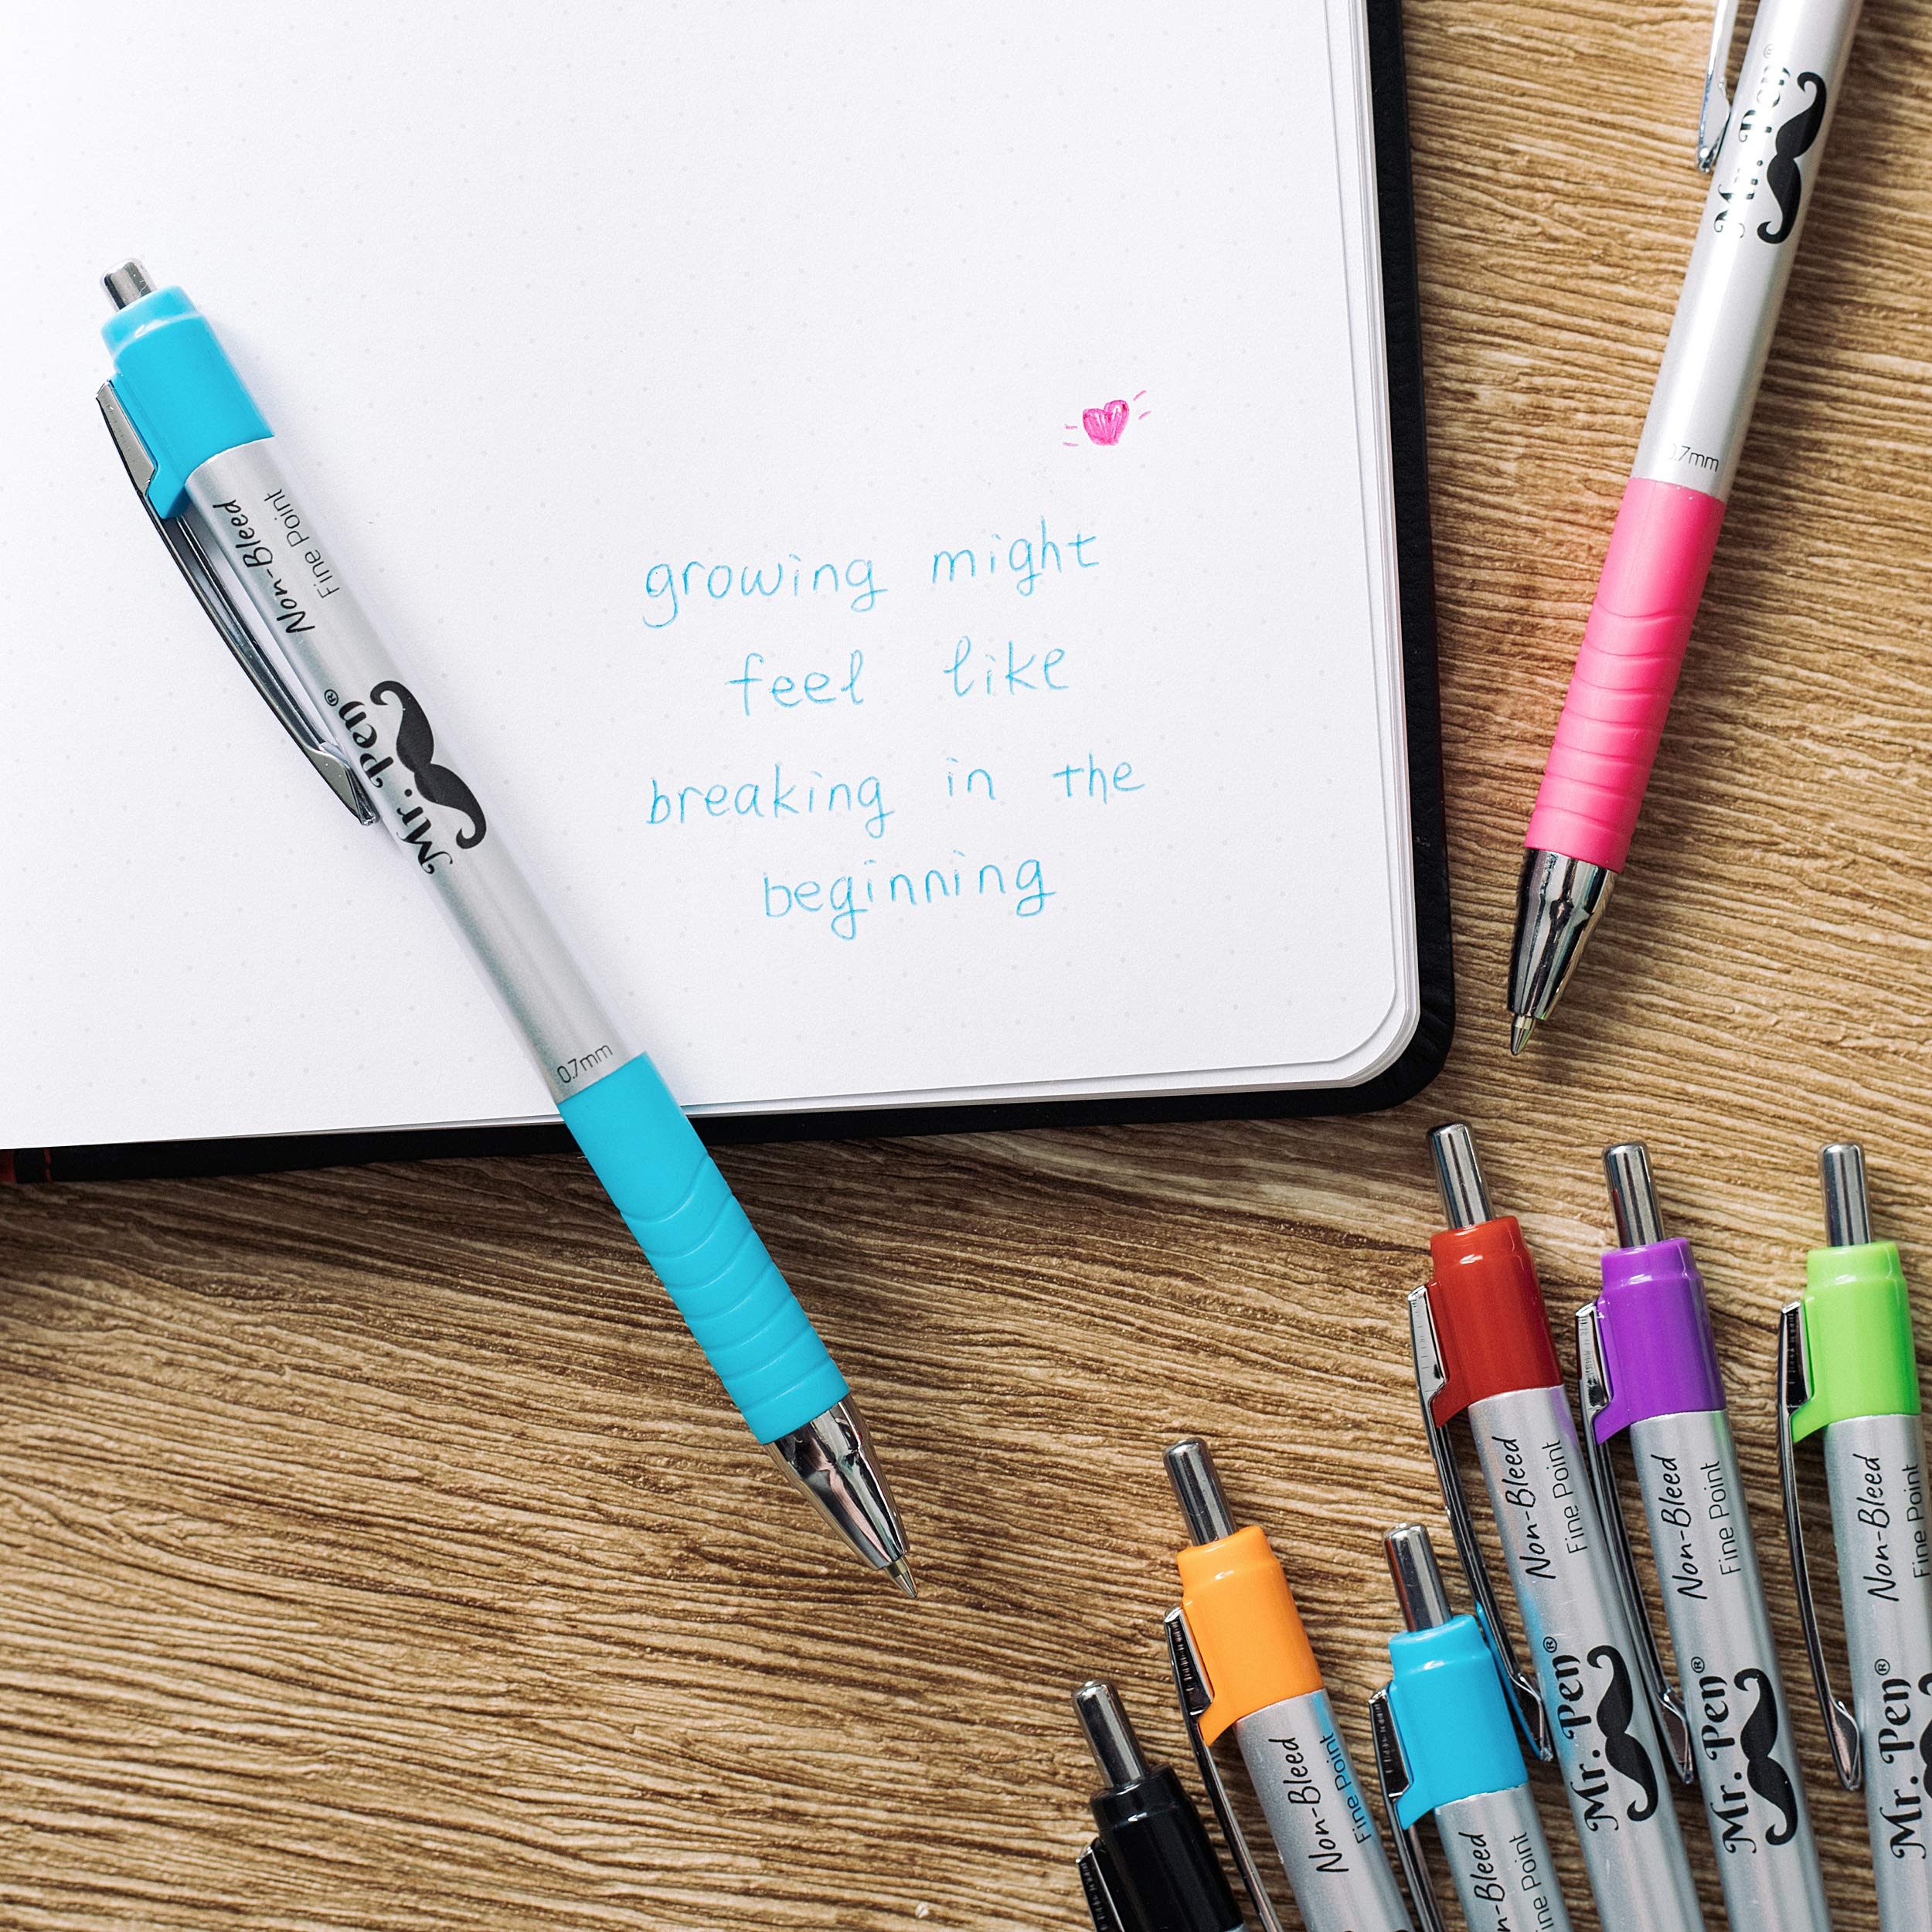 growing might
feel like
breaking in the
beginning
Non-Bleed
Fine Point
Mr. Pen®
0.7mm
Mr. Pen®
0.7mm
Non-Bleed
Fine Point
Mr. Pen®
Non-Bleed
Fine Point
Mr. Pen®
Non-Bleed
Fine Point
Mr. Pen®
Non-Bleed
Fine Point
n-Bleed
ine Point